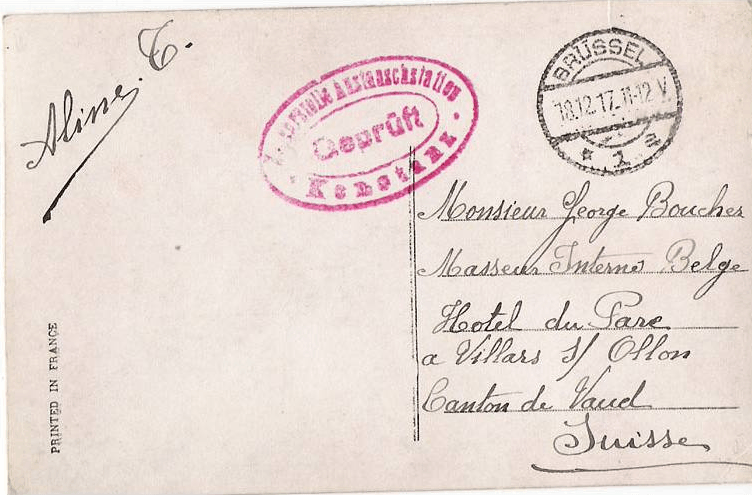 Aline. T.
Austauschstation
Geprüft
Konstanz
BRÜSSEL
18.12.17. 11-12 V
* 1 m
Monsieur George Boucher
Masseur Interné Belge
Hotel du Parc
a Villars s/ Ollon
Canton de Vaud
Suisse
PRINTED IN FRANCE